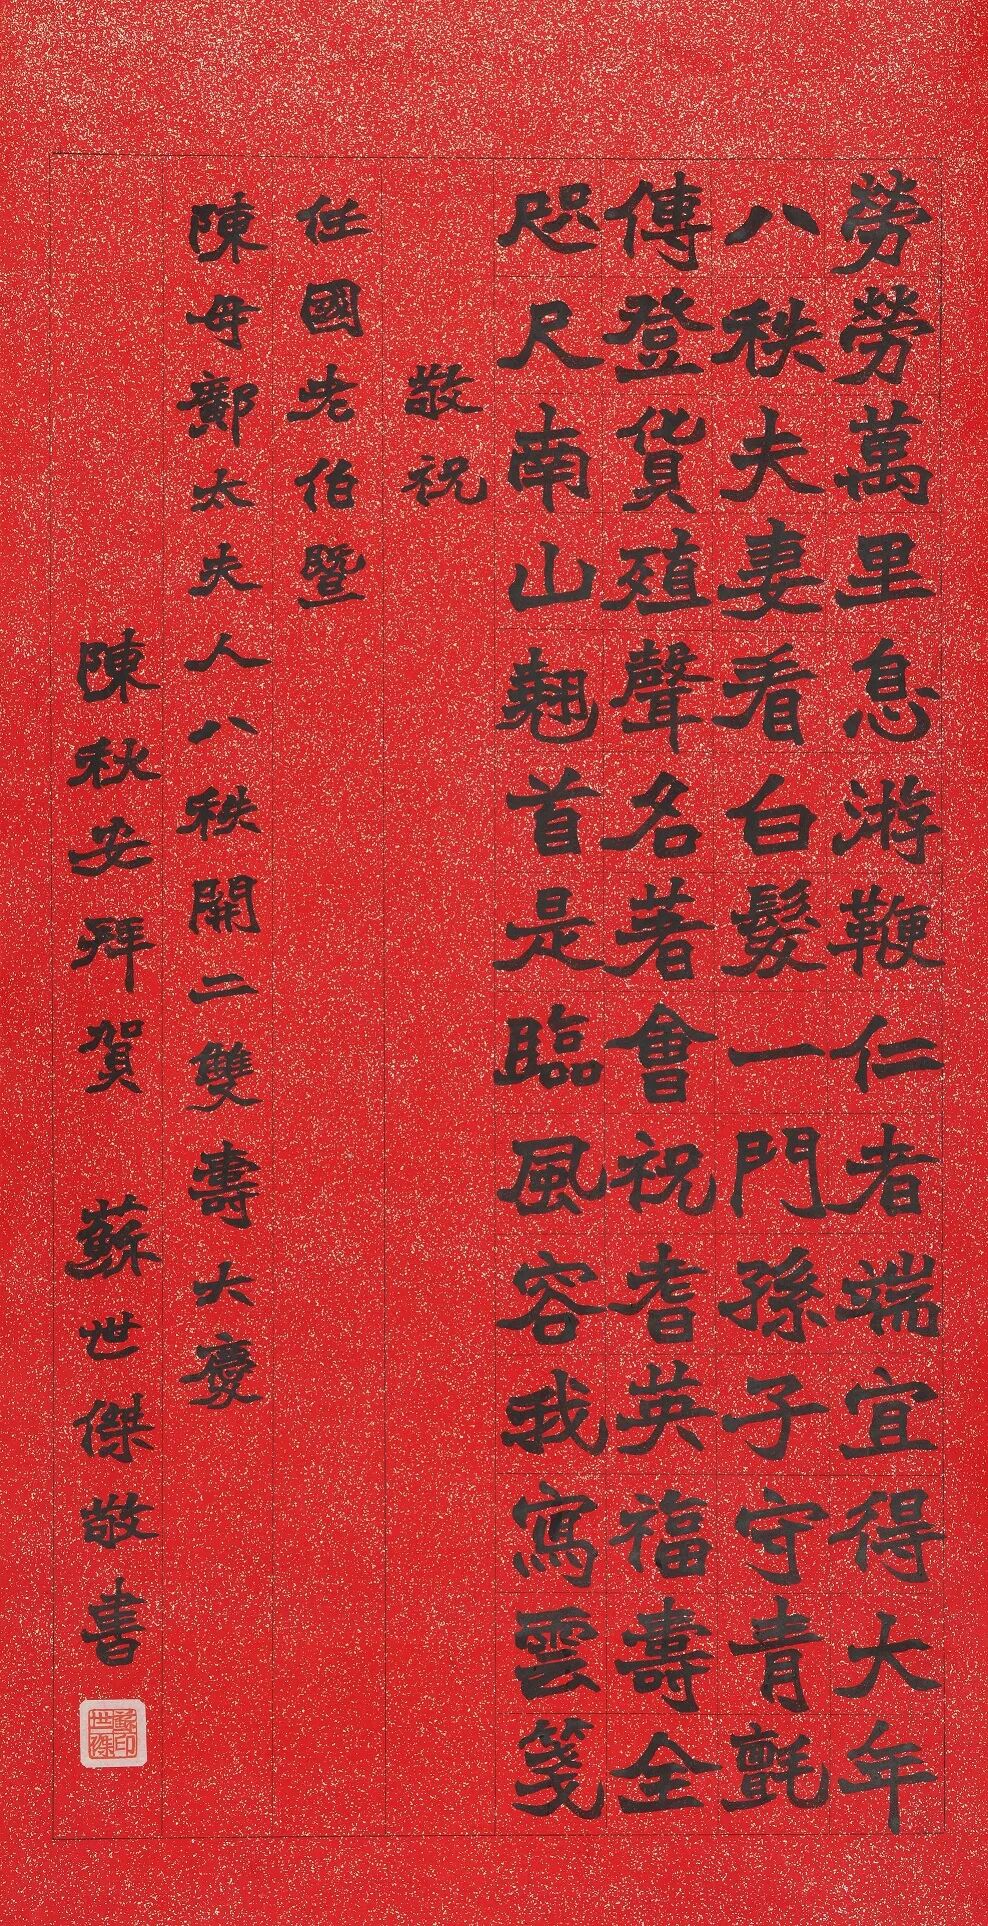 勞勞萬里息游鞭仁者端宜得大年
八秩夫妻看白髮一門孫子守青氈
傳登貨殖聲名著會祝耆英福壽全
咫尺南山翹首是臨風容我寫雲箋
敬祝
任國老伯暨
陳母鄺太夫人八秩開二雙壽大慶
陳秋安拜賀 蘇世傑敬書
蘇世傑印